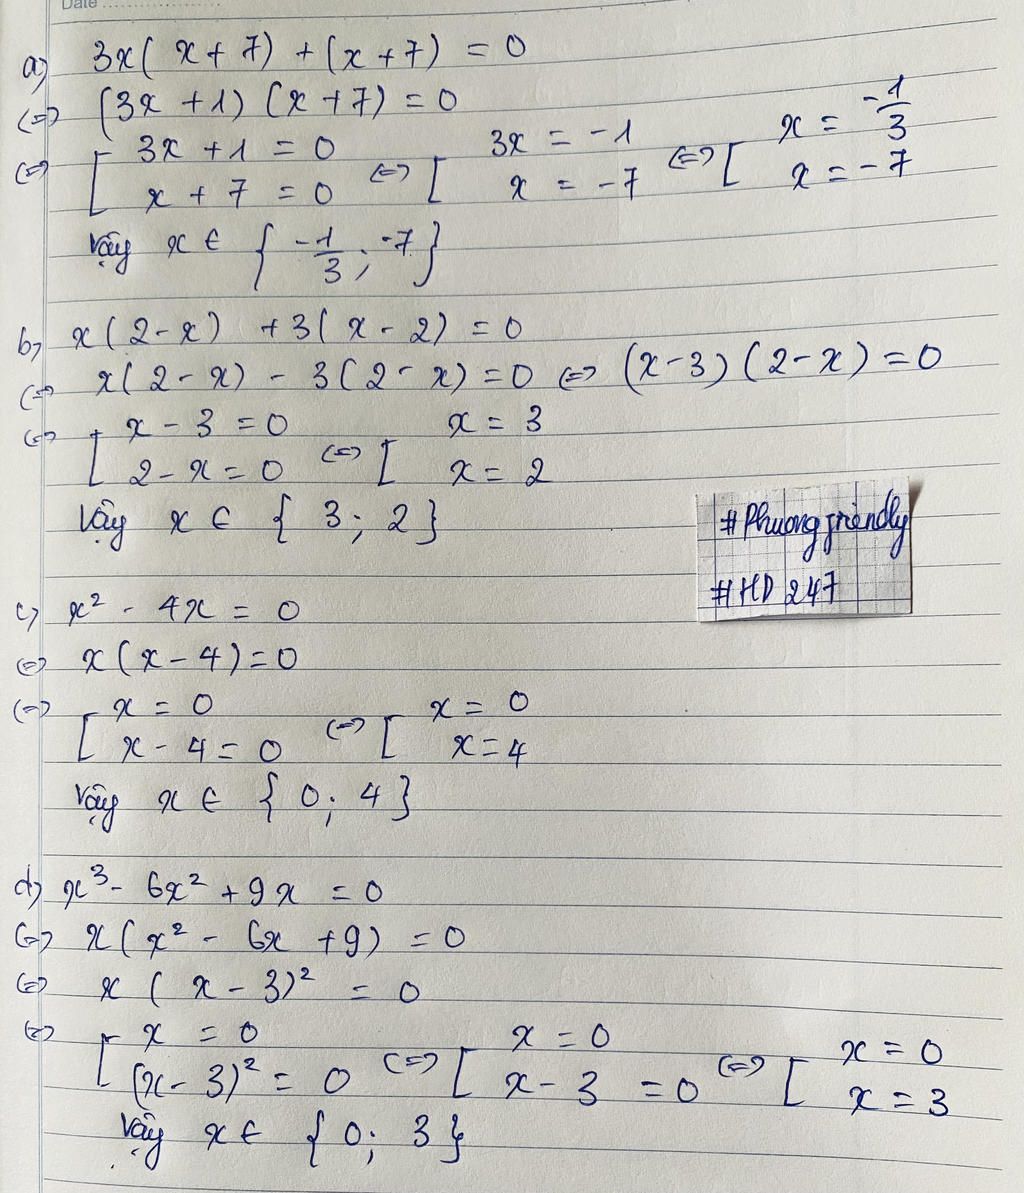 Date
a) 3x( x + 7) + (x + 7) = 0
(=) (3x + 1) (x + 7) = 0
(=) [ 3x + 1 = 0 (=) [ 3x = -1 (=) [ x = -1/3
x + 7 = 0 x = -7 x = -7
Vậy x ∈ { -1/3 ; -7 }
b) x(2 - x) + 3( x - 2) = 0
(=) x(2 - x) - 3(2 - x) = 0 (=) (x - 3) (2 - x) = 0
(=) [ x - 3 = 0 (=) [ x = 3
2 - x = 0 x = 2
Vậy x ∈ { 3 ; 2 }
#Phuongfriendly
#HD 247
c) x² - 4x = 0
(=) x(x - 4) = 0
(=) [ x = 0 (=) [ x = 0
x - 4 = 0 x = 4
Vậy x ∈ { 0 ; 4 }
d) x³ - 6x² + 9x = 0
(=) x(x² - 6x + 9) = 0
(=) x ( x - 3)² = 0
(=) [ x = 0 (=) [ x = 0 (=) [ x = 0
(x - 3)² = 0 x - 3 = 0 x = 3
Vậy x ∈ { 0 ; 3 }